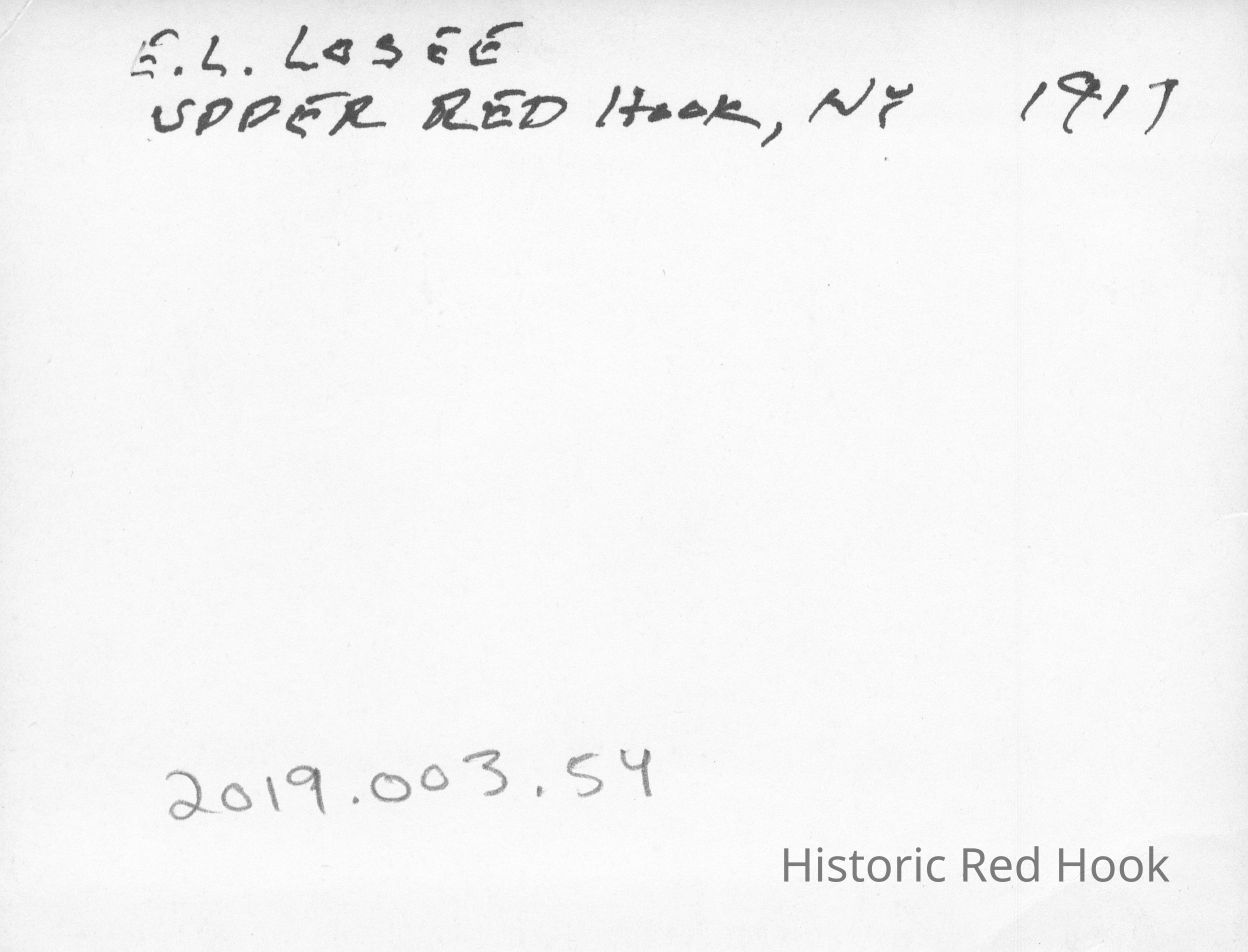 E. L. LOSEE
UPPER RED HOOK, NY 1917
2019.003.54
Historic Red Hook